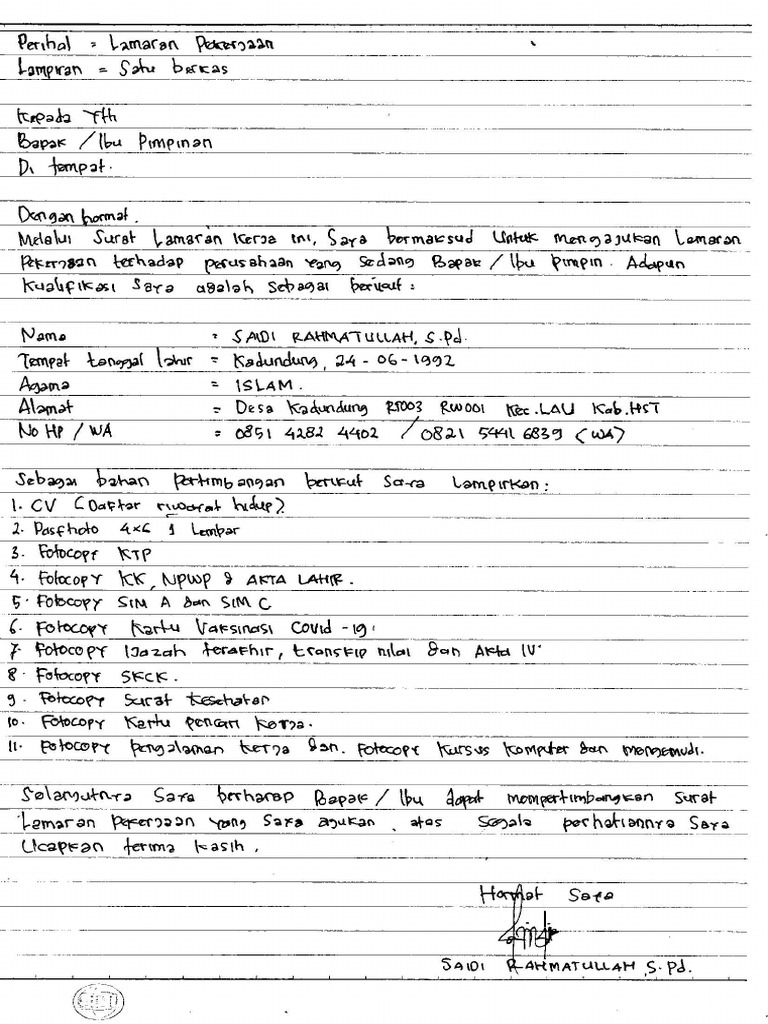 Perihal = Lamaran Pekerjaan
Lampiran = Satu berkas
Kepada Yth
Bapak / Ibu Pimpinan
Di tempat.
Dengan hormat.
Melalui Surat Lamaran Kerja ini, Saya bermaksud untuk mengajukan Lamaran
Pekerjaan terhadap perusahaan yang sedang Bapak / Ibu pimpin. Adapun
Kualifikasi Saya adalah sebagai berikut :
Nama : SAIDI RAHMATULLAH, S.Pd.
Tempat tanggal lahir = Kadundung, 24 - 06 - 1992
Agama = ISLAM.
Alamat = Desa Kadundung RT003 RW001 Kec. LAU Kab. HST
No HP / WA = 0851 4282 4402 / 0821 5441 6839 (WA)
Sebagai bahan pertimbangan berikut Saya lampirkan :
1. CV (Daftar riwayat hidup)
2. Pasphoto 4x6 1 Lembar
3. Fotocopy KTP
4. Fotocopy KK, NPWP & AKTA LAHIR.
5. Fotocopy SIM A dan SIM C
6. Fotocopy Kartu Vaksinasi Covid -19.
7. Fotocopy Ijazah terakhir, transkip nilai dan Akta IV.
8. Fotocopy SKCK.
9. Fotocopy Surat Kesehatan
10. Fotocopy Kartu pencari Kerja.
11. Fotocopy pengalaman Kerja dan. Fotocopy Kursus Komputer dan mengemudi.
Selanjutnya Saya berharap Bapak / Ibu dapat mempertimbangkan Surat
Lamaran Pekerjaan yang Saya ajukan, atas segala perhatiannya Saya
Ucapkan terima kasih.
Hormat Saya
SAIDI RAHMATULLAH, S.Pd.